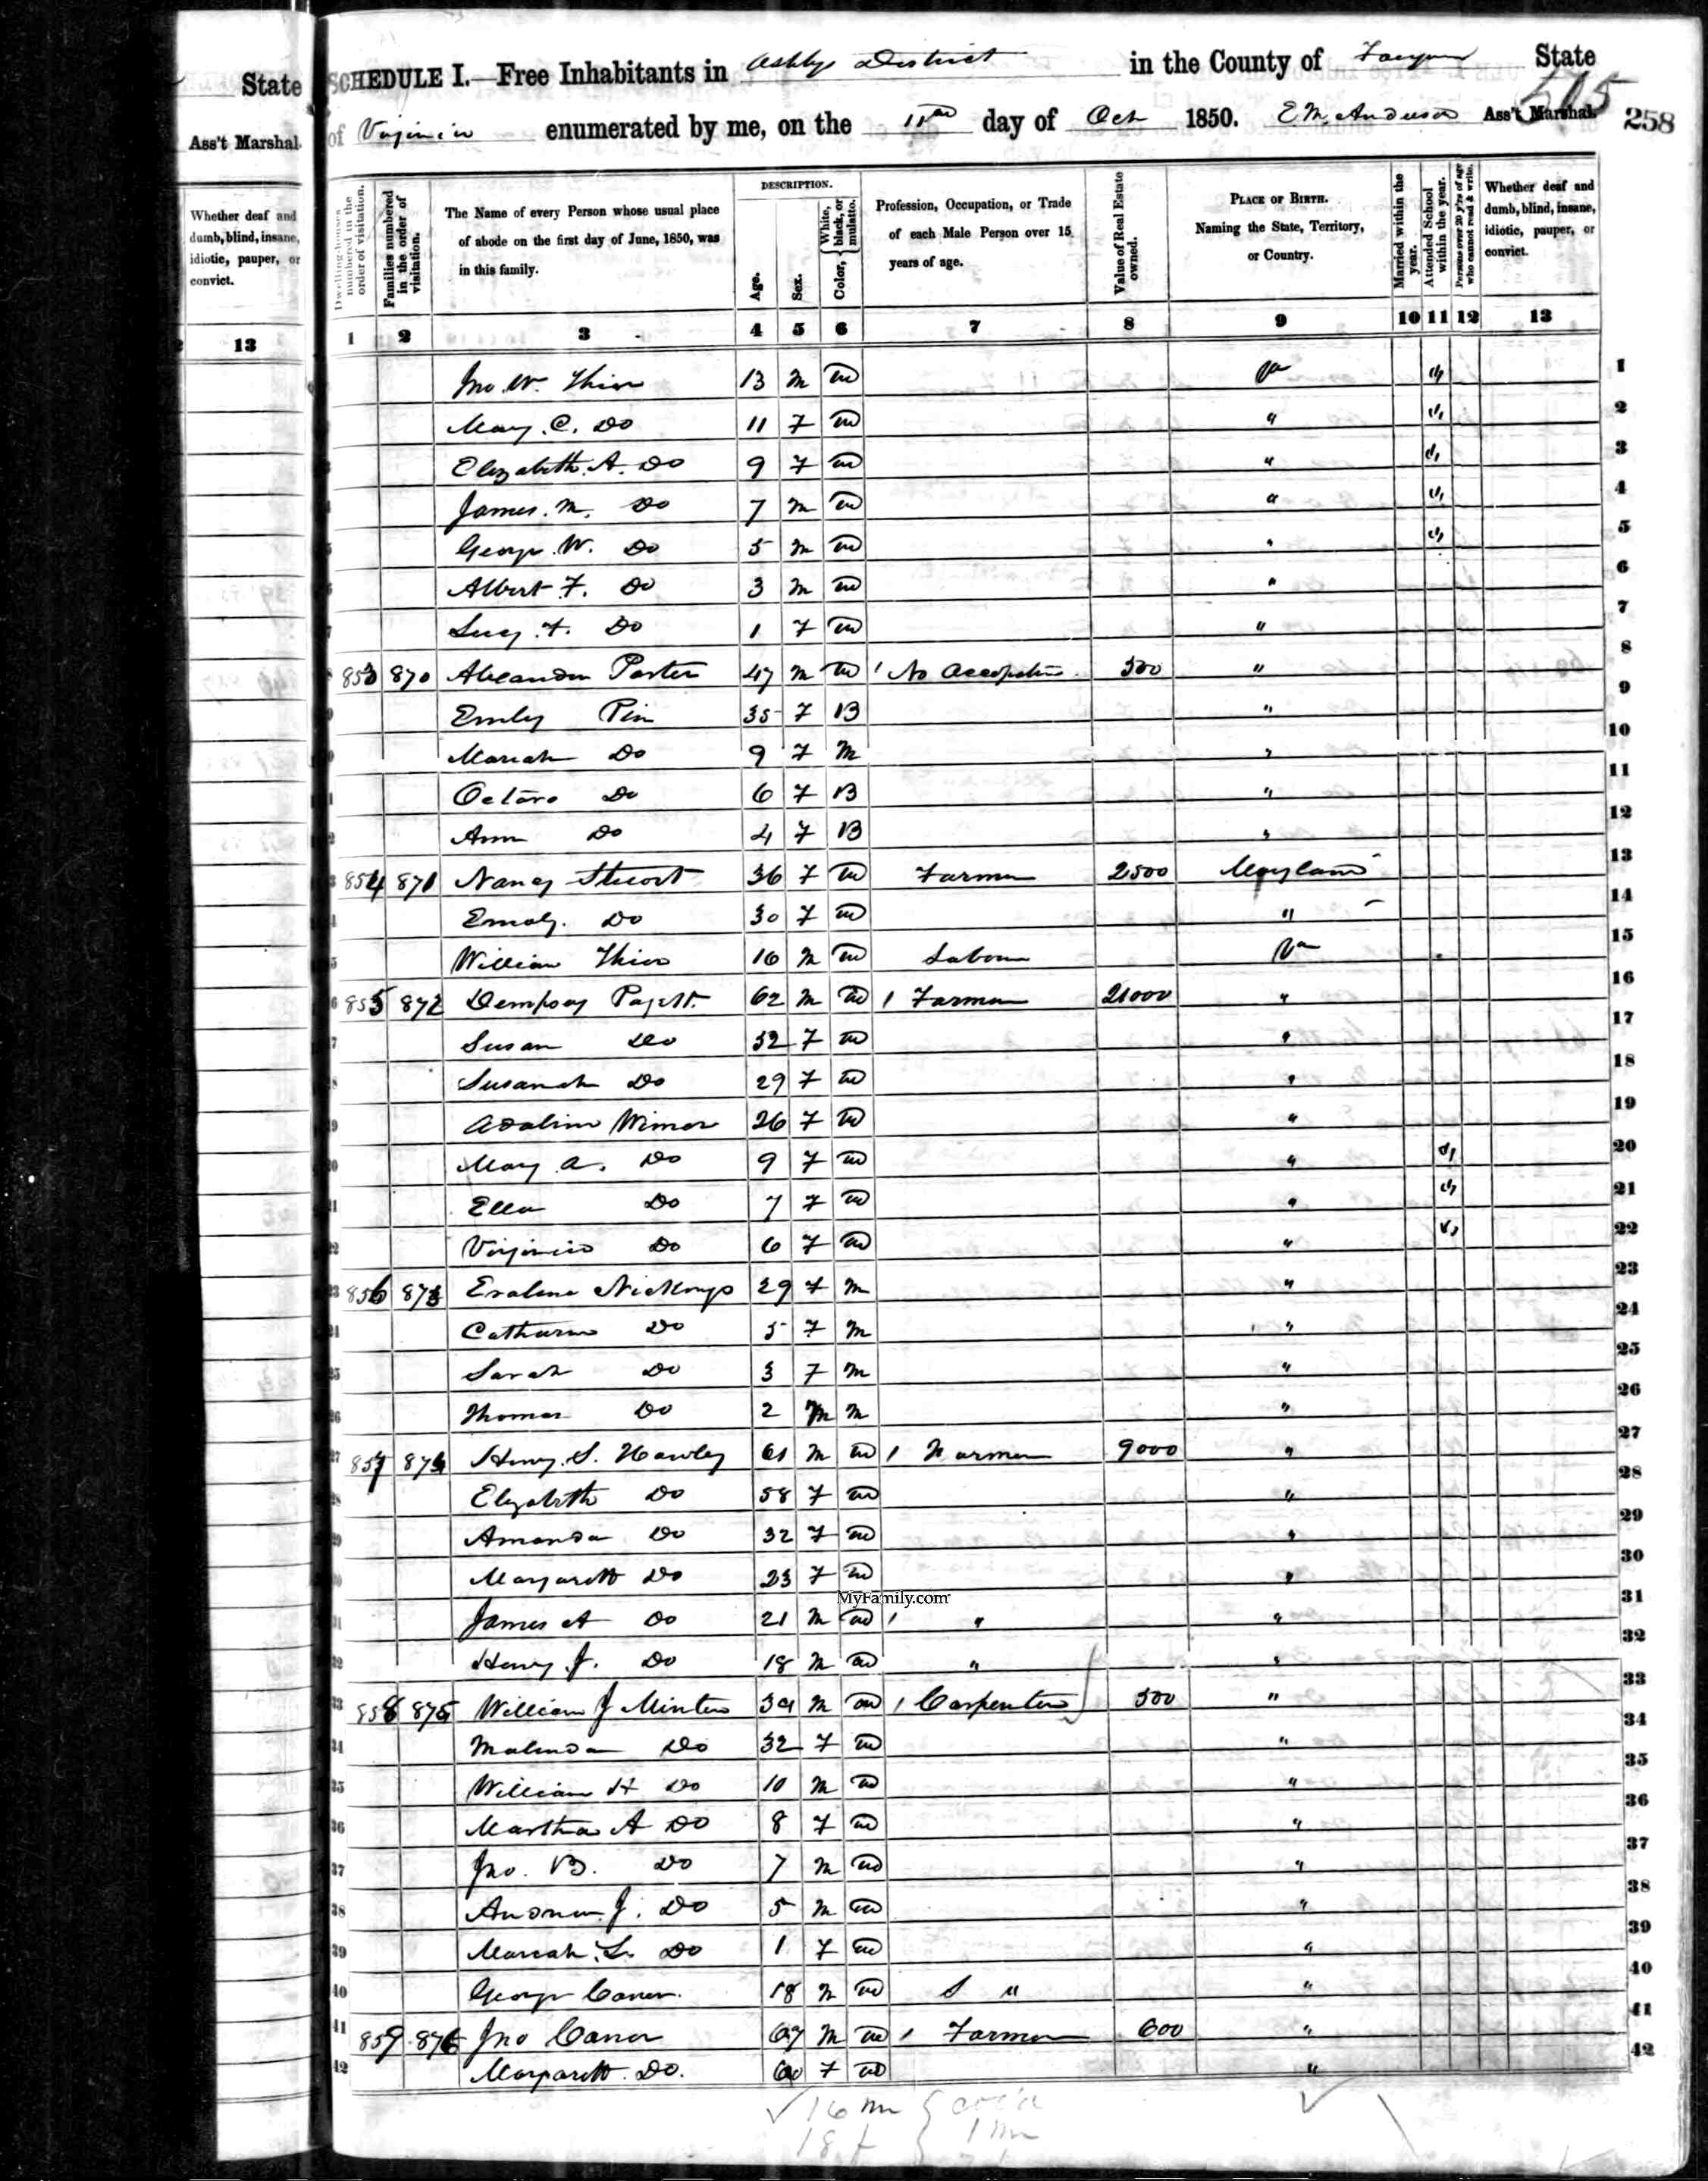 State
Ass't Marshal.
Whether deaf and dumb, blind, insane, idiotic, pauper, or convict.
13
SCHEDULE I.—Free Inhabitants in Ashbys District in the County of State
of Virginia enumerated by me, on the 11th day of Oct 1850. E M Anderson Ass't Marshal.
515
258
Dwelling-houses numbered in the order of visitation.
Families numbered in the order of visitation.
The Name of every Person whose usual place of abode on the first day of June, 1850, was in this family.
DESCRIPTION.
Age.
Sex.
Color, { White, black, or mulatto.
Profession, Occupation, or Trade of each Male Person over 15 years of age.
Value of Real Estate owned.
PLACE OF BIRTH.
Naming the State, Territory, or Country.
Married within the year.
Attended School within the year.
Persons over 20 y'rs of age who cannot read & write.
Whether deaf and dumb, blind, insane, idiotic, pauper, or convict.
1 2 3 4 5 6 7 8 9 10 11 12 13
Jno. W. 13 M W Va 1
Mary. C. Do 11 F W " 2
Elizabeth. A. Do 9 F W " 3
James. M. Do 7 M W " 4
George. W. Do 5 M W " 5
Albert F. Do 3 M W " 6
Lucy. F. Do 1 F W " 7
853 870 Alexander Porter 47 M W 1 No Occupation 500 " 8
Emily Pin 35 F B " 9
Mariah Do 9 F M " 10
Do 6 F B " 11
Ann Do 4 F B " 12
854 871 Nancy 36 F W Farmer 2500 Maryland 13
Do 30 F W " 14
William 16 M W Labour Va 15
855 872 Dempsey Pagett 62 M W 1 Farmer 21000 " 16
Susan Do 52 F W " 17
Susanah Do 29 F W " 18
Adaline 26 F W " 19
Mary A. Do 9 F W " 20
Ella Do 7 F W " 21
Virginia Do 6 F W " 22
856 873 Evaline 29 F M " 23
Catharine Do 5 F M " 24
Sarah Do 3 F M " 25
Thomas Do 2 M M " 26
857 874 Henry. S. Hawley 61 M W 1 Farmer 9000 " 27
Elizabeth Do 58 F W " 28
Amanda Do 32 F W " 29
Margarett Do 23 F W " 30
James A Do 21 M W 1 " " 31
Henry. J. Do 18 M W " " 32
858 875 William J Minter 39 M W 1 Carpenter 500 " 33
Malinda Do 32 F W " 34
William H Do 10 M W " 35
Martha A Do 8 F W " 36
Jno. B. Do 7 M W " 37
J. Do 5 M W " 38
Mariah. L. Do 1 F W " 39
George 18 M W " " 40
859 876 Jno 67 M W 1 Farmer 600 " 41
Margarett Do. 60 F W " 42
MyFamily.com
16 m
18 f
1 m